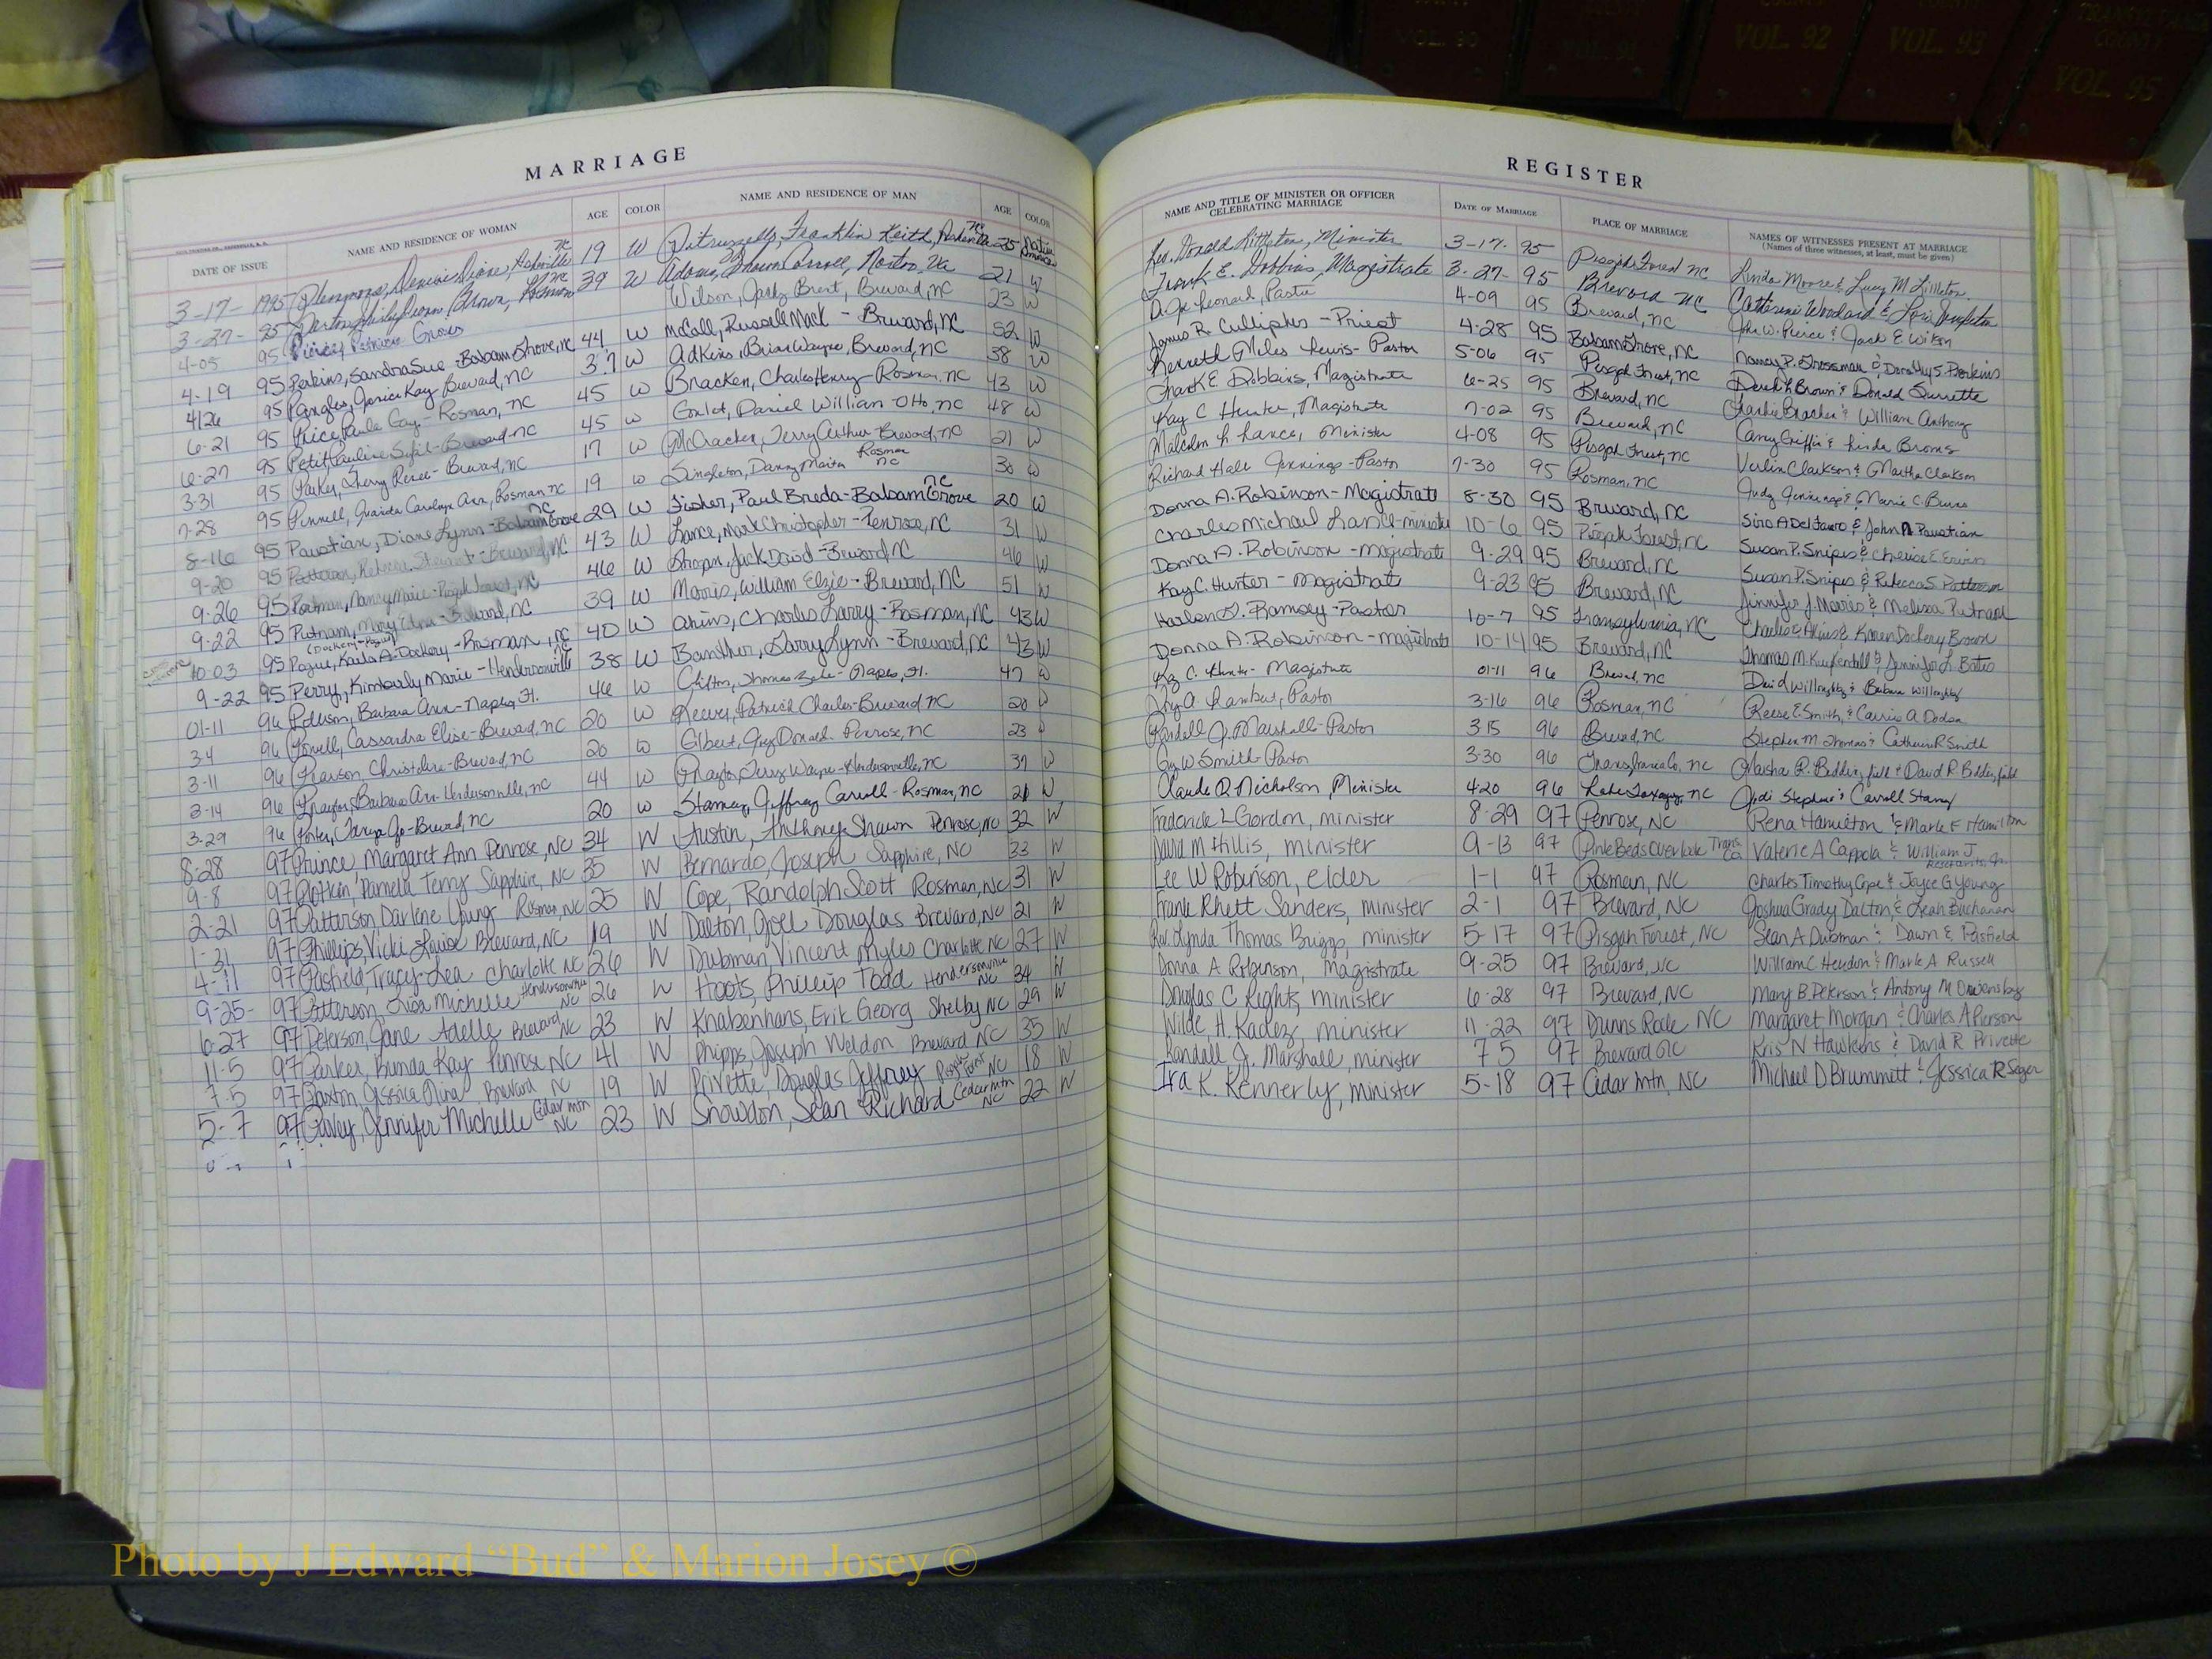 VOL. 90
VOL. 92
VOL. 93
COUNTY
VOL. 95
MARRIAGE
DATE OF ISSUE NAME AND RESIDENCE OF WOMAN AGE COLOR NAME AND RESIDENCE OF MAN AGE COLOR
3-17-1995 19 W Franklin Keith, 25 Native American
3-27-95 39 W Adams, Shawn Carroll, Norton, Va 21 W
4-05 95 Pierce, Patricia Wilson, Brent, Brevard, NC 23 W
4-19 95 Perkins, Sandra Sue - Balsam Grove, NC 44 W McCall, Russell Mack - Brevard, NC 52 W
4/26 95 Kay Brevard, NC 37 W Adkins, Brian Wayne, Brevard, NC 38 W
6-21 95 Price, Paula Gay - Rosman, NC 45 W Bracken, Charles Henry - Rosman, NC 43 W
6-27 95 Petit, Pauline Sybil - Brevard NC 45 W Daniel William - Otto, NC 48 W
3-31 95 Parker, Sherry Renee - Brevard, NC 17 W McCracken, Terry Arthur Brevard, NC 21 W
7-28 95 Pinnell, Carolyn Ann, Rosman NC 19 W Singleton, Danny Rosman NC 30 W
8-16 95 Paustian, Diane Lynn - Balsam Grove NC 29 W Fisher, Paul Breda - Balsam Grove NC 20 W
9-20 95 Patterson, Rebecca Stewart - Brevard, NC 43 W Lance, Mark Christopher - Penrose, NC 31 W
9-26 95 Nancy Marie - Pisgah Forest, NC 46 W Jack David - Brevard NC 46 W
9-22 95 Putnam, Mary Edna - Brevard, NC 39 W Morris, William Elzie - Brevard, NC 51 W
10-03 95 Pogue, Karla A. Dockery - Rosman, NC 40 W Akins, Charles Larry - Rosman, NC 43 W
9-22 95 Perry, Kimberly Marie - Hendersonville 38 W Banther, Larry Lynn - Brevard, NC 43 W
01-11 96 Barbara Ann - Naples, Fl. 46 W Clifton, Thomas - Naples, Fl. 47 W
3-4 96 Powell, Cassandra Elise - Brevard, NC 20 W Reeves, Patrick Charles - Brevard NC 20 W
3-11 96 Pearson, Christine - Brevard, NC 20 W Gilbert, Guy Donald - Penrose, NC 23 W
3-14 96 Barbara Ann - Hendersonville, NC 44 W Terry Wayne - Hendersonville, NC 37 W
3-29 96 Porter, Tanya Jo - Brevard, NC 20 W Stamey, Jeffrey Carroll - Rosman, NC 21 W
8-28 97 Prince, Margaret Ann Penrose, NC 34 W Austin, Anthony Shawn Penrose, NC 32 W
9-8 97 Plotkin, Pamela Terry Sapphire, NC 35 W Bernardo, Joseph Sapphire, NC 33 W
2-21 97 Patterson, Darlene Young Rosman, NC 25 W Cope, Randolph Scott Rosman, NC 31 W
1-31 97 Phillips, Vicki Louise Brevard, NC 19 W Dalton, Joel Douglas Brevard, NC 21 W
4-11 97 Pasfield, Tracy Lea Charlotte NC 26 W Dubman, Vincent Myles Charlotte NC 27 W
9-25- 97 Patterson, Lisa Michelle Hendersonville NC 26 W Hoots, Phillip Todd Hendersonville NC 34 W
6-27 97 Peterson, Jane Adelle Brevard NC 23 W Knabenhans, Erik Georg Shelby NC 29 W
11-5 97 Parker, Brenda Kay Penrose NC 41 W Phipps, Joseph Weldon Brevard NC 35 W
7-5 97 Paxton, Jessica Nina Brevard NC 19 W Privette, Douglas Jeffrey Pisgah Forest NC 18 W
5-7 97 Pavey, Jennifer Michelle Cedar mtn NC 23 W Snowdon, Sean Richard Cedar mtn NC 22 W
REGISTER
NAME AND TITLE OF MINISTER OR OFFICER CELEBRATING MARRIAGE DATE OF MARRIAGE PLACE OF MARRIAGE NAMES OF WITNESSES PRESENT AT MARRIAGE
(Names of three witnesses, at least, must be given)
Rev. Donald Littleton, Minister 3-17-95 Pisgah Forest NC Linda Moore & Lucy M Littleton
Frank E. Dobbins, Magistrate 3-27-95 Brevard NC Catherine Woodard & Lori
D. Joe Leonard, Pastor 4-09 95 Brevard, NC John W. Pierce & Jack E Wilson
James R. Culliphes - Priest 4-28 95 Balsam Grove, NC Nancy P. Grossman & Dorothy S. Perkins
Kenneth Miles Lewis - Pastor 5-06 95 Pisgah Forest, NC Derek L Brown & Donald Surrette
Frank E. Dobbins, Magistrate 6-25 95 Brevard, NC Charlie Bracken & William Anthony
Kay C Hunter, Magistrate 7-02 95 Brevard, NC Carey Griffin & Linda Brooms
Malcolm L. Lance, Minister 4-08 95 Pisgah Forest, NC Verlin Clarkson & Martha Clarkson
Richard Hall Jennings - Pastor 7-30 95 Rosman, NC Judy Jennings & Marie C. Burns
Donna A. Robinson - Magistrate 8-30 95 Brevard, NC Siro A Del Fauro & John Paustian
Charles Michael Lance - minister 10-6 95 Pisgah Forest, NC Susan P. Snipes & Cherise E Ervin
Donna A. Robinson - magistrate 9-29 95 Brevard, NC Susan P. Snipes & Rebecca S Patterson
Kay C. Hunter - Magistrate 9-23 95 Brevard, NC Jennifer J. Morris & Melissa Putnam
Harlen D. Ramsey - Pastor 10-7 95 Transylvania, NC Charlie E Akins & Karen Dockery Brown
Donna A. Robinson - magistrate 10-14 95 Brevard, NC Thomas M. Kuykendall & Jennifer L. Bates
Kay C. Hunter - Magistrate 01-11 96 Brevard, NC David Willoughby & Barbara Willoughby
A. Lambert, Pastor 3-16 96 Rosman, NC Reese E. Smith, & Carrie A Dodson
Randell J. Marshall - Pastor 3-15 96 Brevard, NC Stephen M Thomas & Catherine R Smith
Guy W Smith - Pastor 3-30 96 Transylvania Co, NC R. Beddingfield & David R. Beddingfield
Claude D. Nicholson, Minister 4-20 96 Lake Toxaway, NC Jodi Stephens & Carroll Stamey
Frederick L Gordon, minister 8-29 97 Penrose, NC Rena Hamilton & Mark E Hamilton
David M Hillis, minister 9-13 97 Pink Beds Overlook Trans. Co Valerie A Cappola & William J.
Lee W Robinson, elder 1-1 97 Rosman, NC Charles Timothy Cope & Joyce G Young
Frank Rhett Sanders, minister 2-1 97 Brevard, NC Joshua Grady Dalton & Leah Buchanan
Rev. Lynda Thomas Briggs, minister 5-17 97 Pisgah Forest, NC Sean A Dubman & Dawn E Pasfield
Donna A Robinson, Magistrate 9-25 97 Brevard, NC William C Heydon & Mark A Russell
Douglas C Rights, minister 6-28 97 Brevard, NC Mary B Peterson & Antony M Owensby
Wilde H. Kadez, minister 11-22 97 Dunns Rock NC Margaret Morgan & Charles A Pierson
Randall J. Marshall, minister 7 5 97 Brevard NC Kris N Hawkins & David R Privette
Ira K. Kennerly, minister 5-18 97 Cedar Mtn, NC Michael D Brummett & Jessica R Seger
Photo by J Edward “Bud” & Marion Josey ©